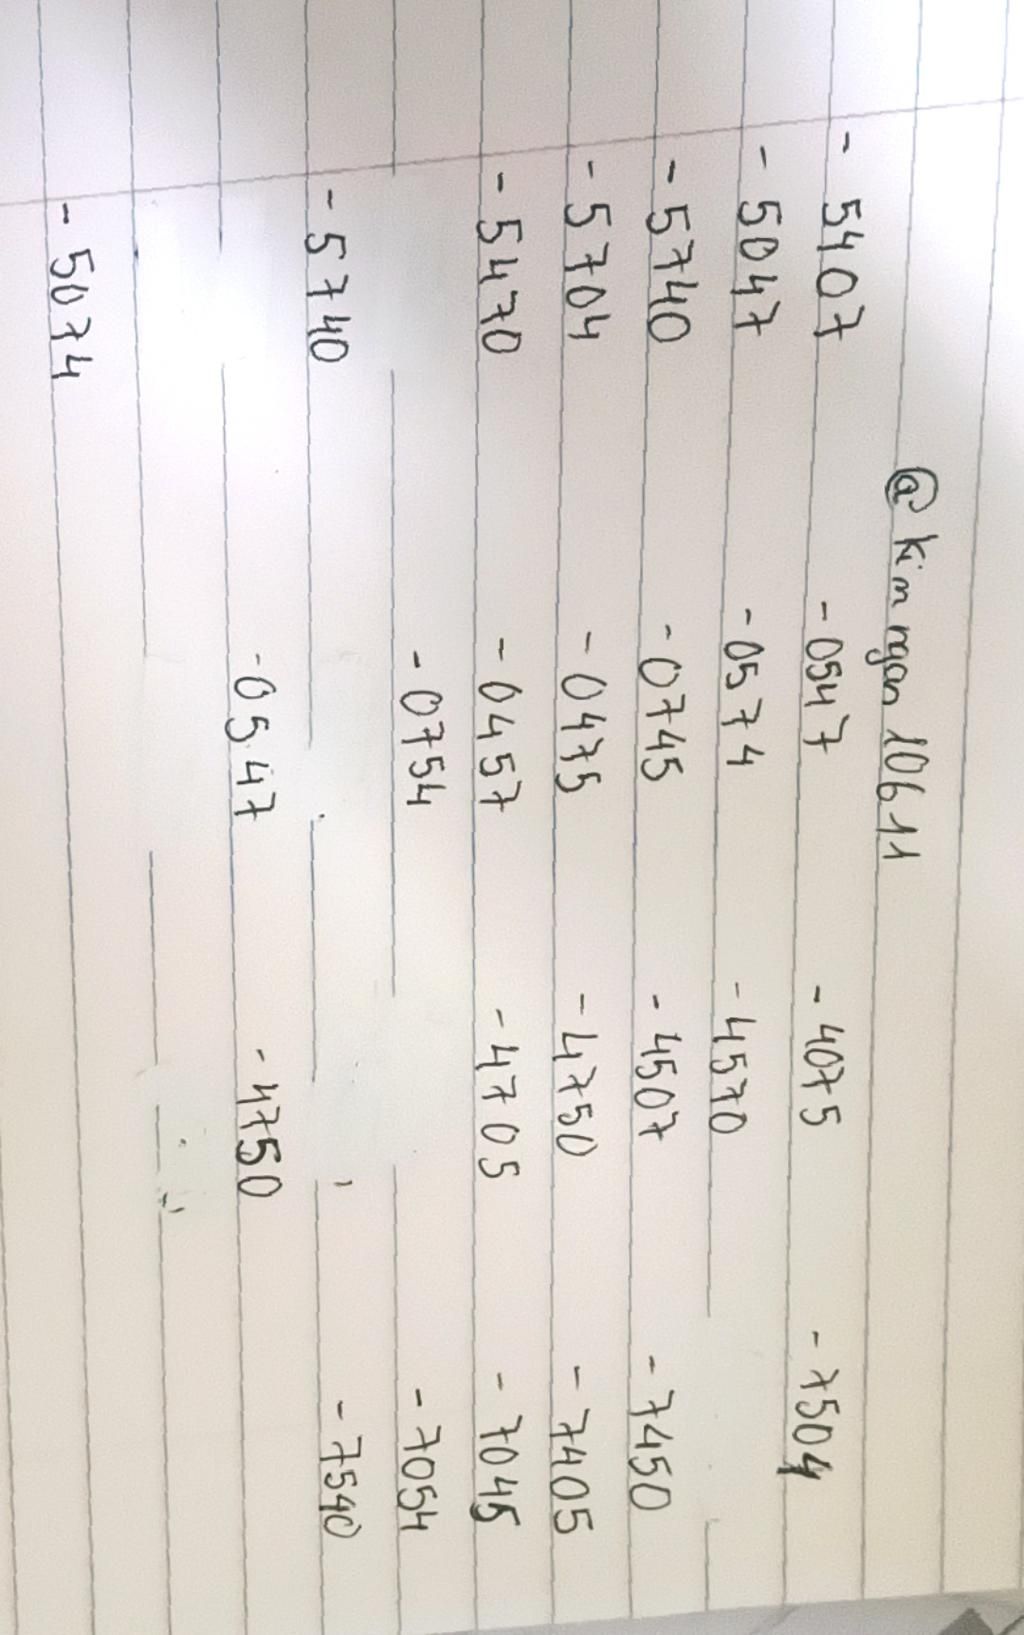 @ kimngan 10611
- 5407 - 0547 - 4075 - 7504
- 5047 - 0574 - 4570
- 5740 - 0745 - 4507 - 7450
- 5704 - 0475 - 4750 - 7405
- 5470 - 0457 - 4705 - 7045
- 0754 - 7054
- 5740 - 7540
- 0547 - 4750
- 5074